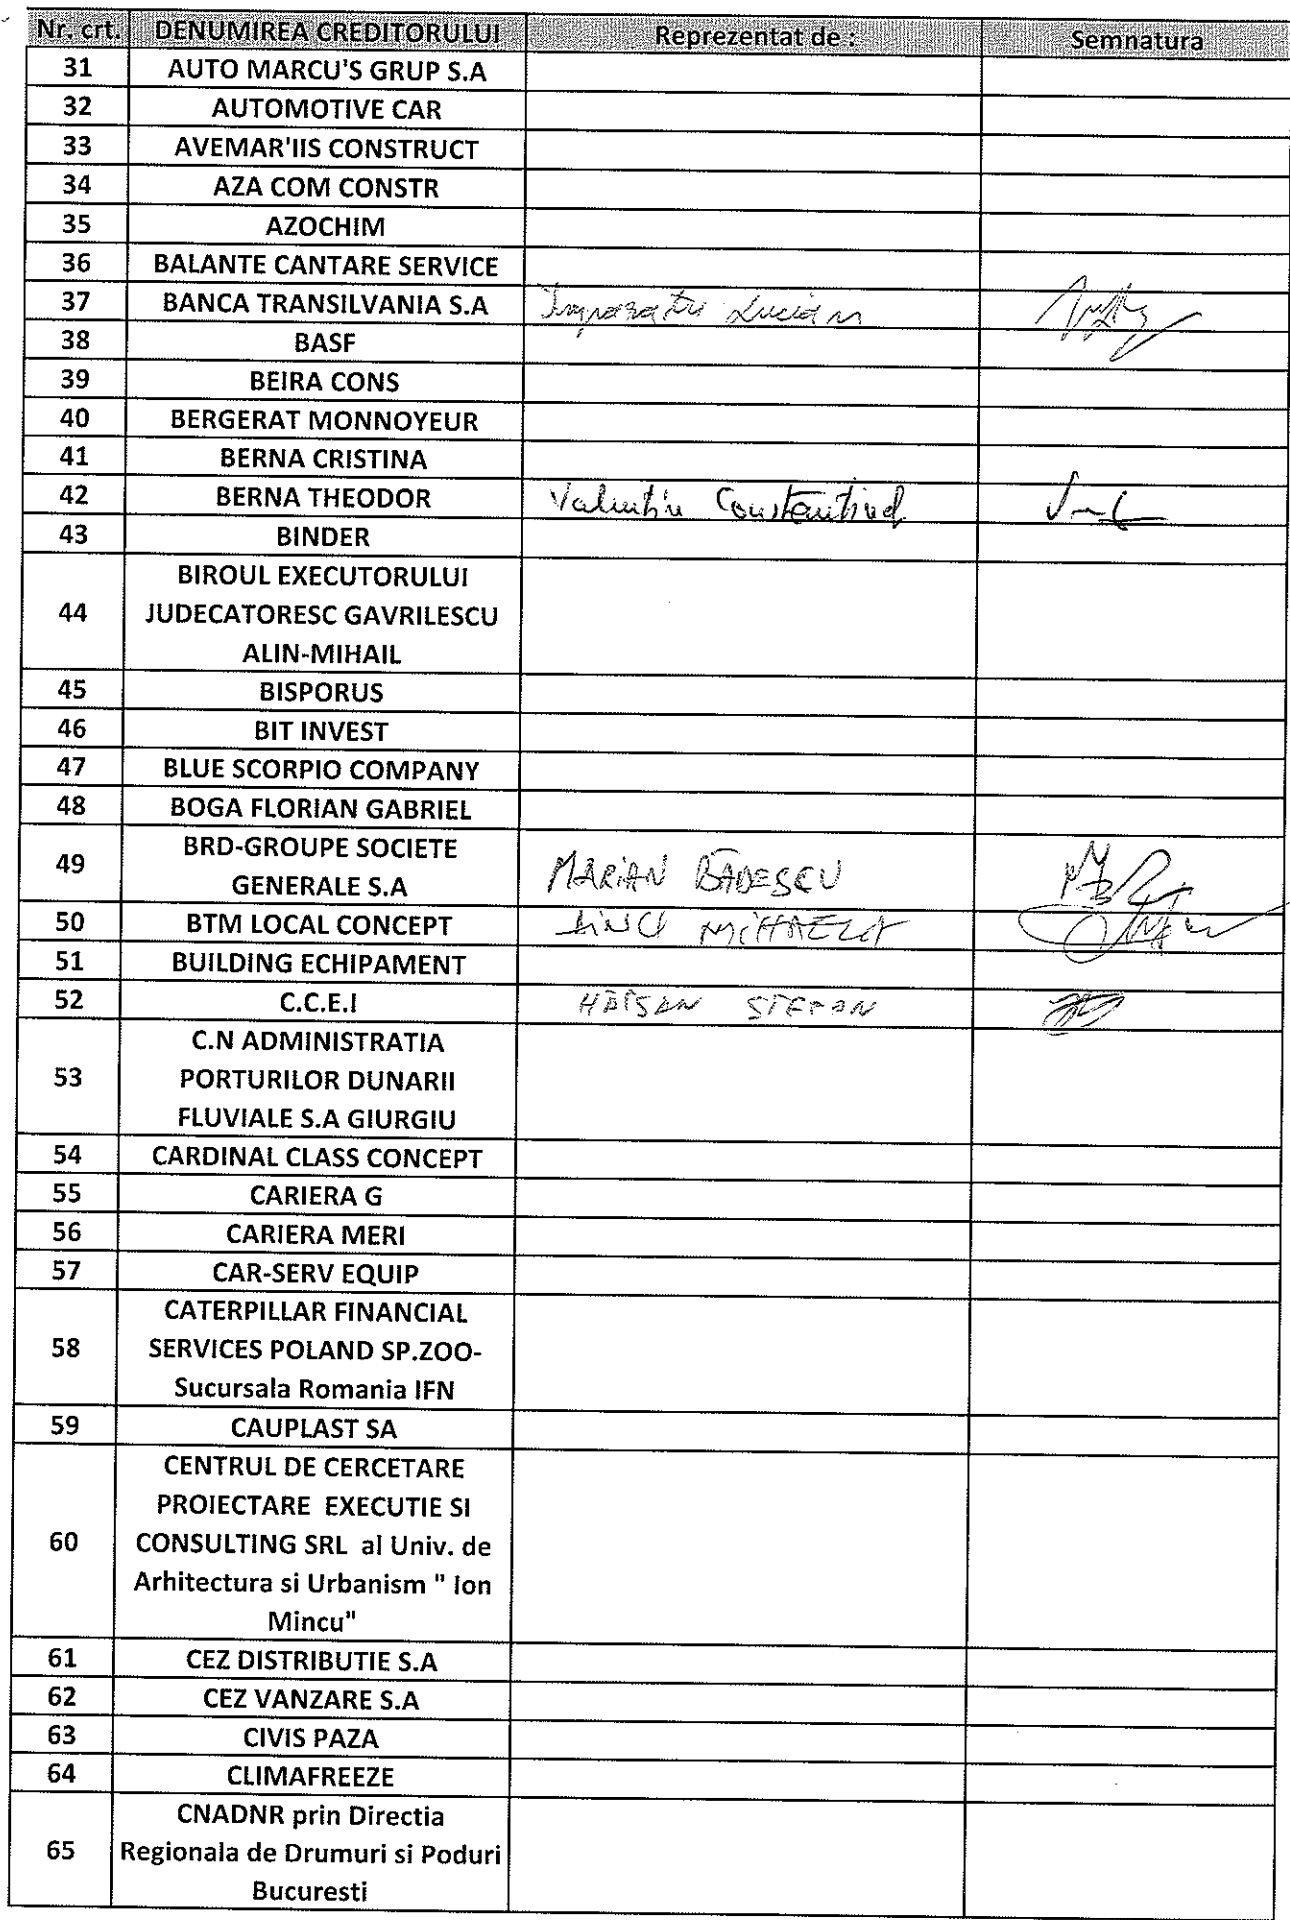 Nr. crt. DENUMIREA CREDITORULUI Reprezentat de : Semnatura
31 AUTO MARCU'S GRUP S.A
32 AUTOMOTIVE CAR
33 AVEMAR'IIS CONSTRUCT
34 AZA COM CONSTR
35 AZOCHIM
36 BALANTE CANTARE SERVICE
37 BANCA TRANSILVANIA S.A Imparatu Lucian
38 BASF
39 BEIRA CONS
40 BERGERAT MONNOYEUR
41 BERNA CRISTINA
42 BERNA THEODOR Valentin Constantinel
43 BINDER
BIROUL EXECUTORULUI
44 JUDECATORESC GAVRILESCU
ALIN-MIHAIL
45 BISPORUS
46 BIT INVEST
47 BLUE SCORPIO COMPANY
48 BOGA FLORIAN GABRIEL
49 BRD-GROUPE SOCIETE
GENERALE S.A MARIAN BĂDESCU
50 BTM LOCAL CONCEPT MIHAELA
51 BUILDING ECHIPAMENT
52 C.C.E.I STEFAN
C.N ADMINISTRATIA
53 PORTURILOR DUNARII
FLUVIALE S.A GIURGIU
54 CARDINAL CLASS CONCEPT
55 CARIERA G
56 CARIERA MERI
57 CAR-SERV EQUIP
CATERPILLAR FINANCIAL
58 SERVICES POLAND SP.ZOO-
Sucursala Romania IFN
59 CAUPLAST SA
CENTRUL DE CERCETARE
PROIECTARE EXECUTIE SI
60 CONSULTING SRL al Univ. de
Arhitectura si Urbanism " Ion
Mincu"
61 CEZ DISTRIBUTIE S.A
62 CEZ VANZARE S.A
63 CIVIS PAZA
64 CLIMAFREEZE
CNADNR prin Directia
65 Regionala de Drumuri si Poduri
Bucuresti